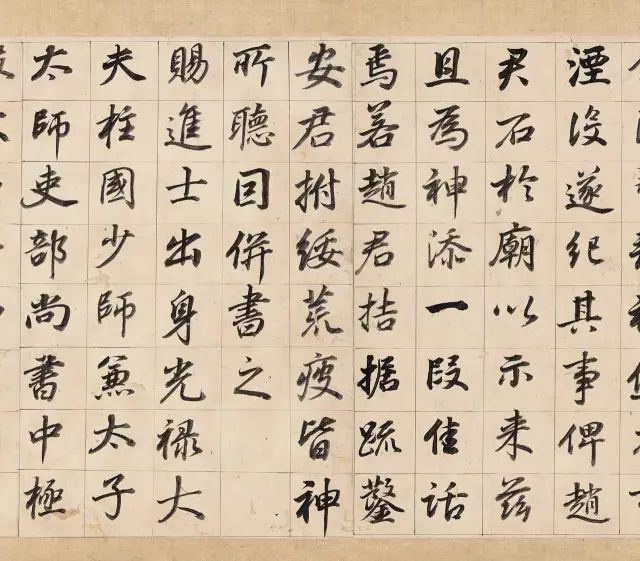 湮沒遂紀其事俾趙
君石於廟以示来茲
且為神添一段佳話
焉若趙君拮据疏鑿
安君拊綏荒瘦皆神
所聽回併書之
賜進士出身光禄大
夫柱國少師兼太子
太師吏部尚書中極